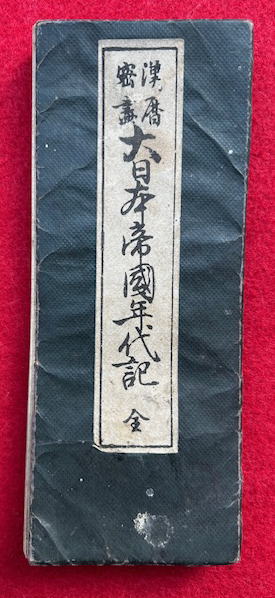 漢暦
密
大日本帝國年代記
全